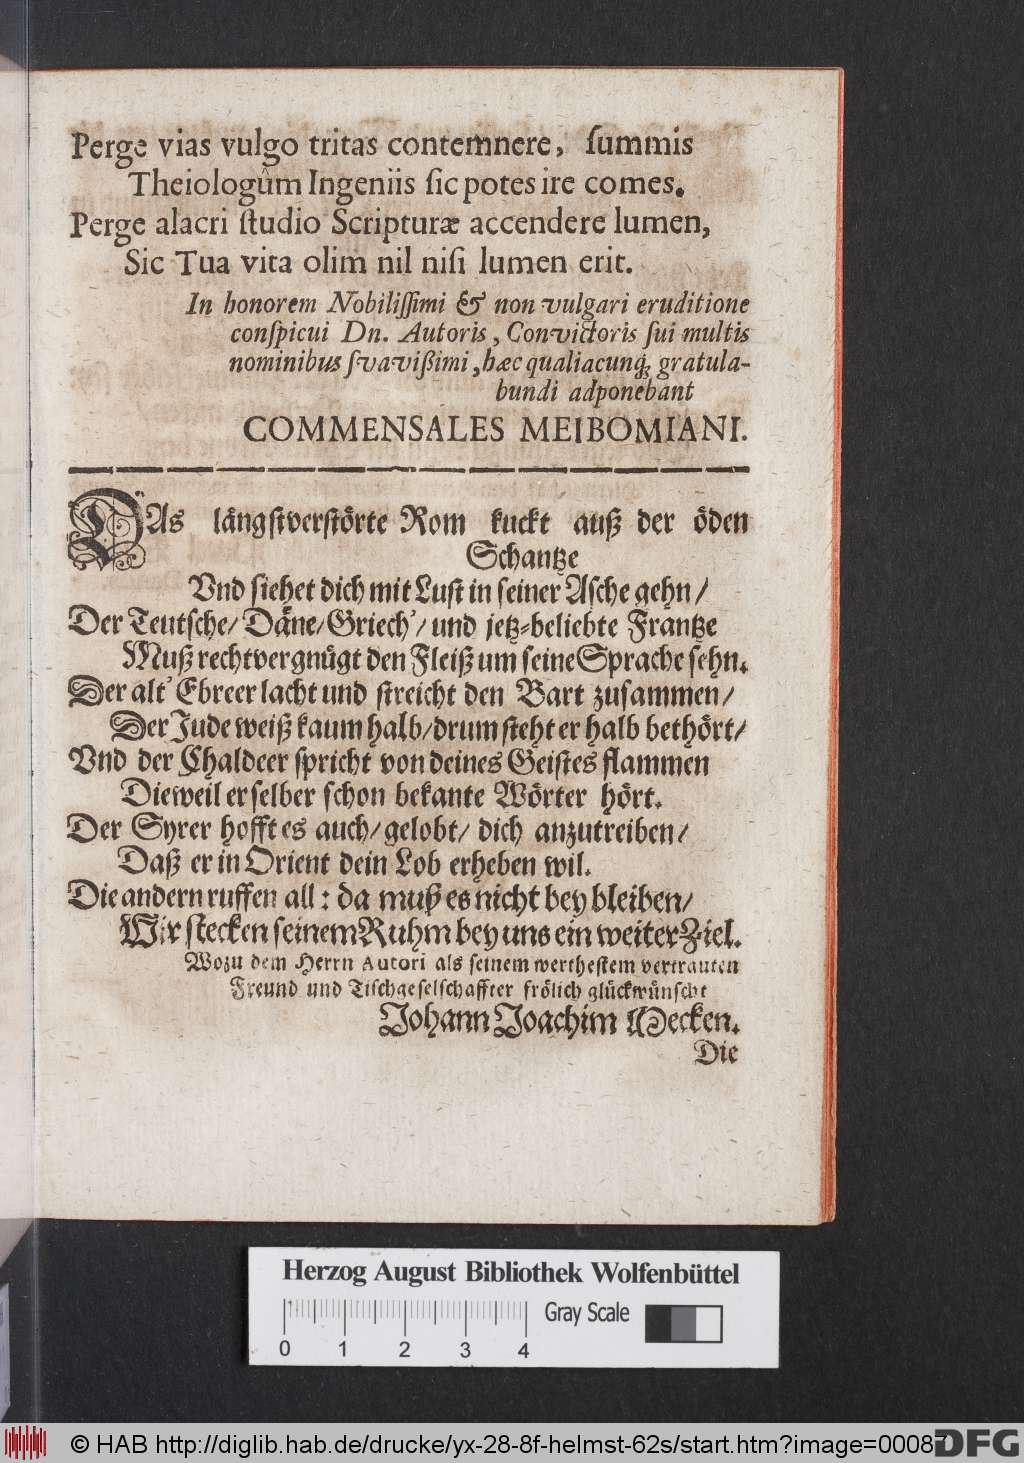 Perge vias vulgo tritas contemnere, ſummis
Theiologûm Ingeniis ſic potes ire comes.
Perge alacri ſtudio Scripturæ accendere lumen,
Sic Tua vita olim nil niſi lumen erit.
In honorem Nobiliſſimi & non vulgari eruditione
conſpicui Dn. Autoris, Convictoris ſui multis
nominibus ſvavißimi, hæc qualiacunq; gratula-
bundi adponebant
COMMENSALES MEIBOMIANI.
DAs längſtverſtörte Rom kuckt auß der öden
Schantze
Vnd ſiehet dich mit Luſt in ſeiner Aſche gehn/
Der Teutſche/ Däne/ Griech'/ und jetz-beliebte Frantze
Muß recht vergnügt den Fleiß um ſeine Sprache ſehn.
Der alt' Ebreer lacht und ſtreicht den Bart zuſammen/
Der Jude weiß kaum halb/ drum ſteht er halb bethört/
Vnd der Chaldeer ſpricht von deines Geiſtes flammen
Dieweil er ſelber ſchon bekante Wörter hört.
Der Syrer hofft es auch/ gelobt/ dich anzutreiben/
Daß er in Orient dein Lob erheben wil.
Die andern ruffen all: da muß es nicht bey bleiben/
Wir ſtecken ſeinem Ruhm bey uns ein weiter Ziel.
Wozu dem Herrn Autori als ſeinem wertheſtem vertrauten
Freund und Tiſchgeſelſchaffter frölich glückwünſcht
Johann Joachim Mecken.
Die
Herzog August Bibliothek Wolfenbüttel
Gray Scale
0 1 2 3 4
© HAB http://diglib.hab.de/drucke/yx-28-8f-helmst-62s/start.htm?image=00087
DFG